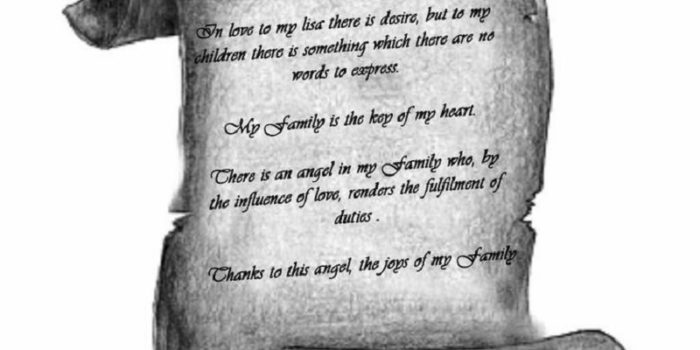 In love to my lisa there is desire, but to my
children there is something which there are no
words to express.
My Family is the key of my heart.
There is an angel in my Family who, by
the influence of love, renders the fulfilment of
duties .
Thanks to this angel, the joys of my Family